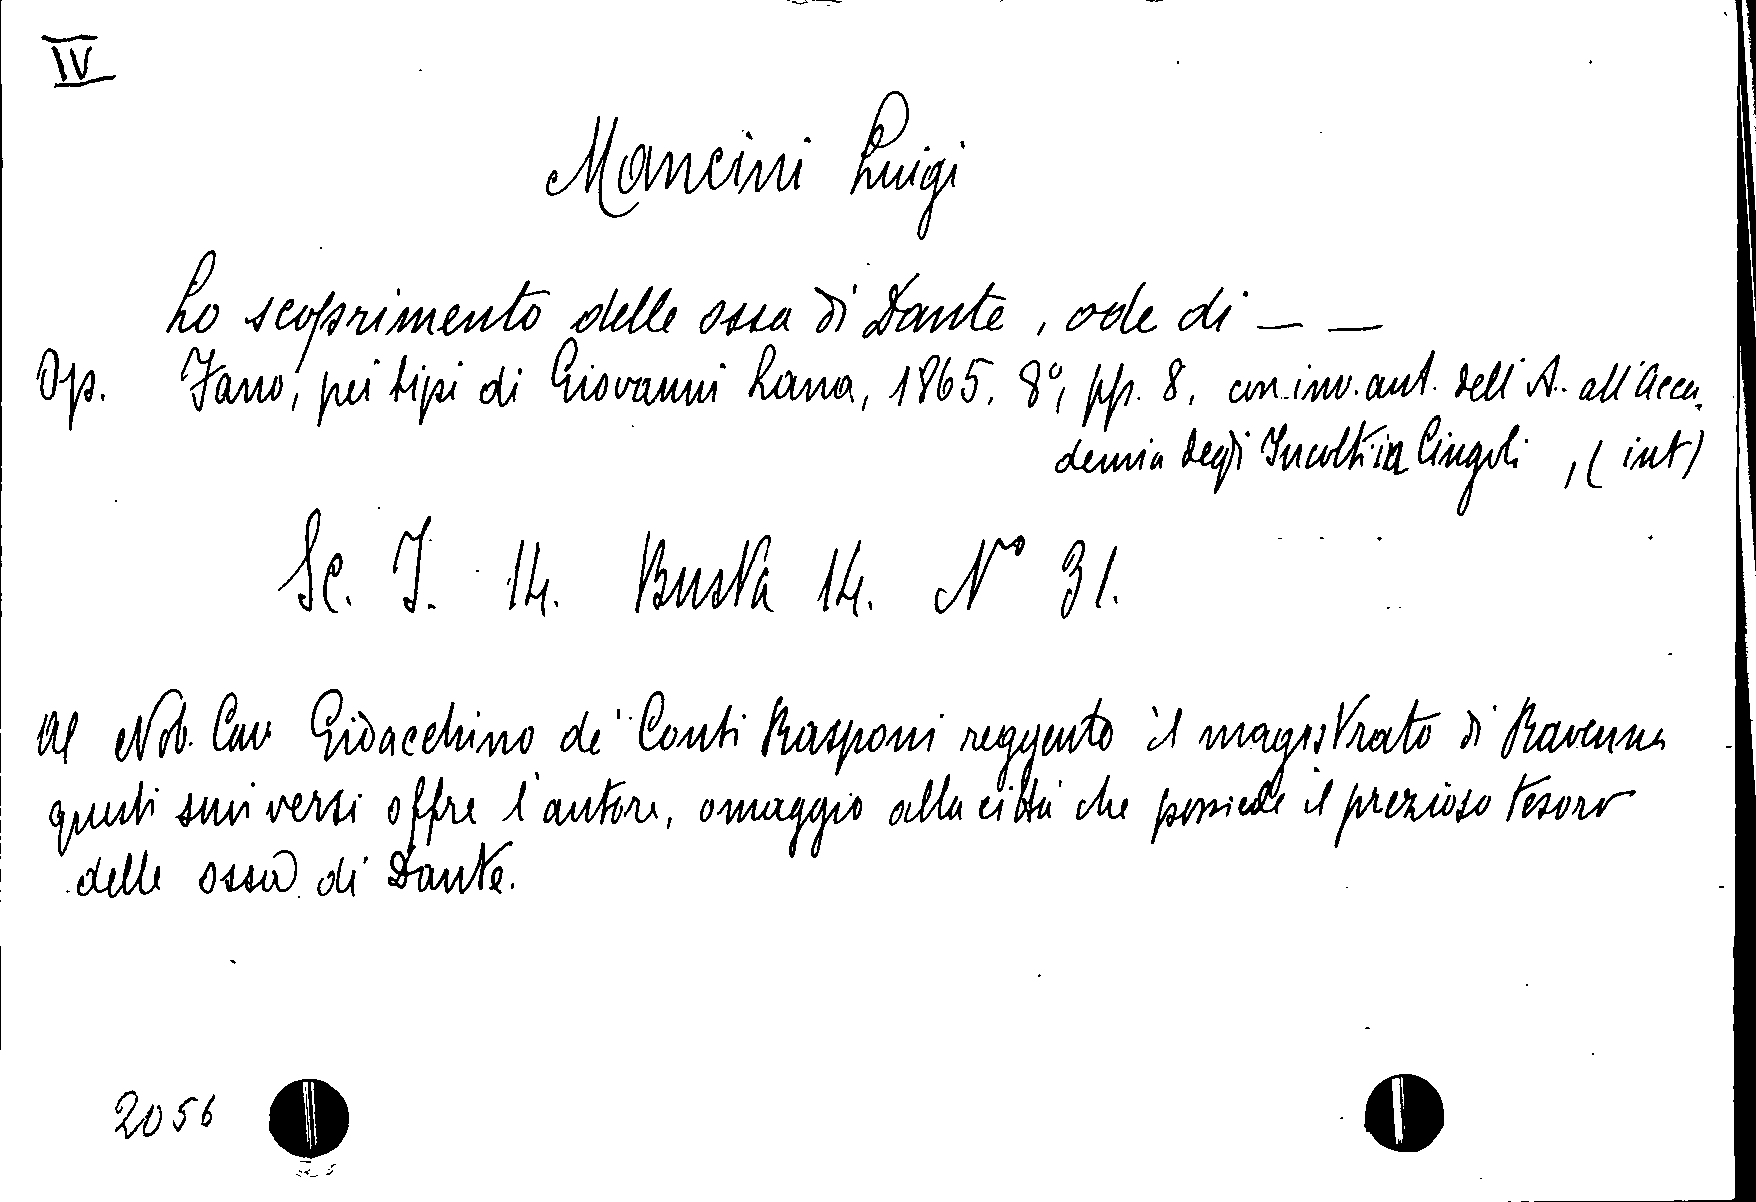 IV
Mancini Luigi
Lo scoprimento delle ossa di Dante, ode di — —
Op. Fano, pei tipi di Giovanni Lana, 1865. 8°, pp. 8. con inv. aut. dell'A. all'Acca-
demia degli Incolti in Cingoli, (int)
Sc. I. 14. Busta 14. N° 31.
Al Nob. Cav. Gioacchino de' Conti Rasponi reggente il magistrato di Ravenna
questi suoi versi offre l'autore, omaggio alla città che possiede il prezioso tesoro
delle ossa di Dante.
2056